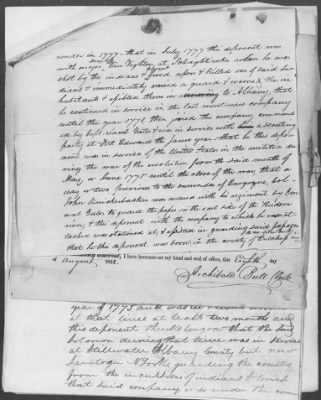 in 1777 - that in July 1777 this deponent was
with major Van Vechten at Schaghticoke when he was
shot by the indians & fired upon & killed one of said In=
dians & immediately raised a guard & warned the in
habitants & assisted them in moving to Albany, that
he continued in service in the last mentioned company
until the year 1778 then joined the company commanded
by in service with a scouting
party at Fort Edward the same year that he this depo=
nent was in service of the United States in the militia du
ring the war of the revolution from the said month of
May or June 1775 until the close of the war that a
day or two previous to the surrender of Burgoyne, Col.
John Knickerbacker was ordered with his regiment by Gen=
eral Gates to guard the pass on the east side of the Hudson
river, & this deponent with the company to which he was at=
tached was stationed at & assisted in guarding said passage
that he this deponent was born in the county of
In testimony whereof, I have hereunto set my hand and seal of office, this Eighth day
of August 1832.
Archibald Bull Clerk
year of 1775 and was
at that time at least two months and
this deponent thinks longer that the said
Solomon during that time was in service
at Stillwater Albany County but now
Saratoga N York, guarding the country
from the incursions of indians & tories
that said company was under the com